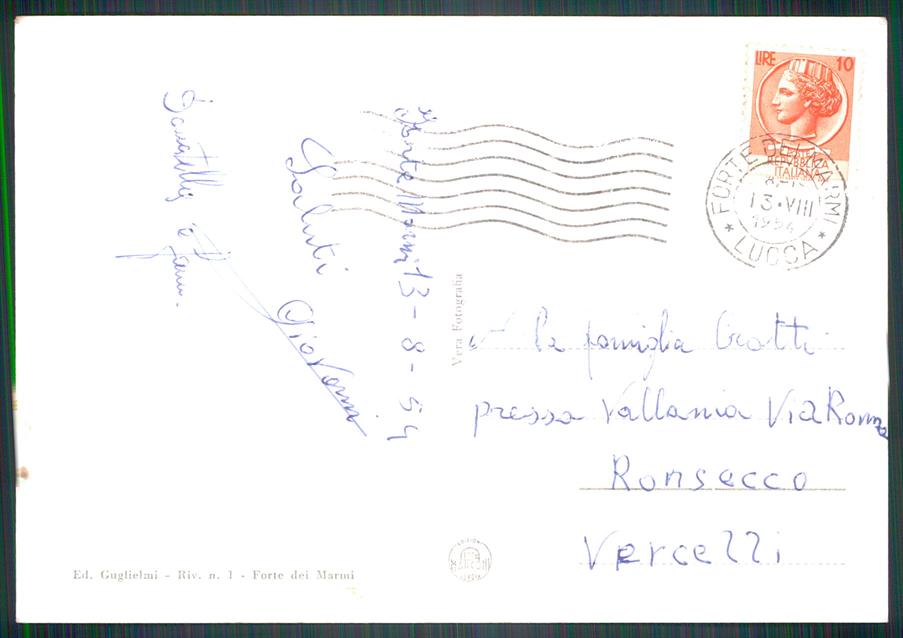 Forte Marmi 13-8-54
Saluti
Giovanni
LIRE 10
POSTE
REPUBBLICA
ITALIANA
FORTE DEI MARMI
13·VIII
1954
* LUCCA *
Vera Fotografia
la famiglia
pressa Vallania Via Roma
Ronsecco
Vercelli
Ed. Guglielmi - Riv. n. 1 - Forte dei Marmi